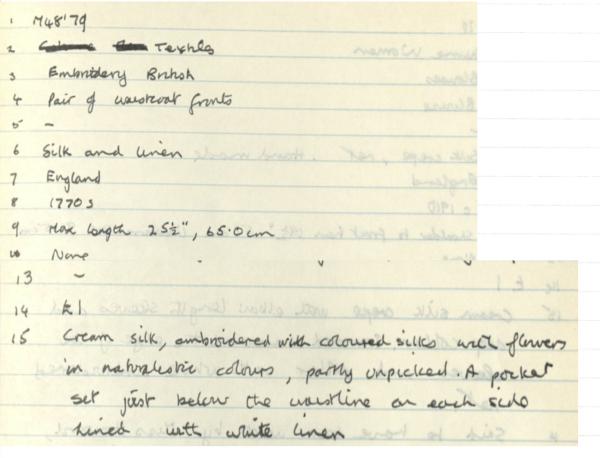 1 M48'79
2 Textiles
3 Embroidery British
4 Pair of waistcoat fronts
5 -
6 Silk and linen
7 England
8 1770s
9 Max length 25½", 65.0cm
10 None
13 -
14 £1
15 Cream silk, embroidered with coloured silks with flowers
in naturalistic colours, partly unpicked. A pocket
set just below the waistline on each side
Lined with white linen